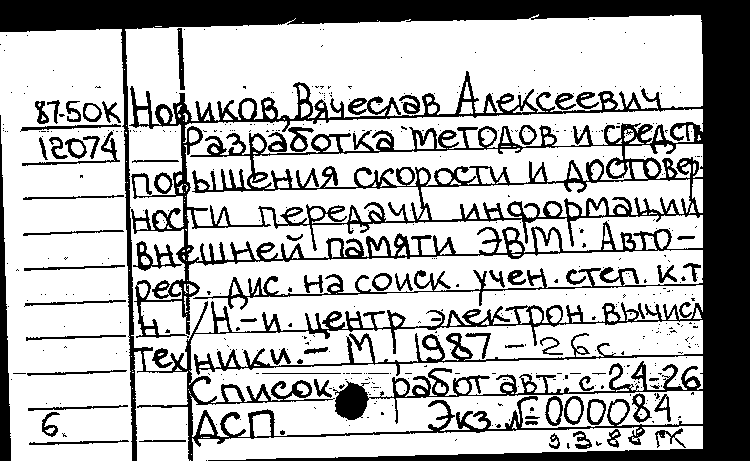 87-50К Новиков, Вячеслав Алексеевич
12074 Разработка методов и средств
повышения скорости и достовер-
ности передачи информации
внешней памяти ЭВМ: Авто-
реф. дис. на соиск. учен. степ. к.т.
н. /Н.-и. центр электрон. вычисл
техники. – М. 1987. – 26 с.
Список работ авт.: с. 24-26
6 ДСП. Экз. № 000084.
9.3.88 ГК